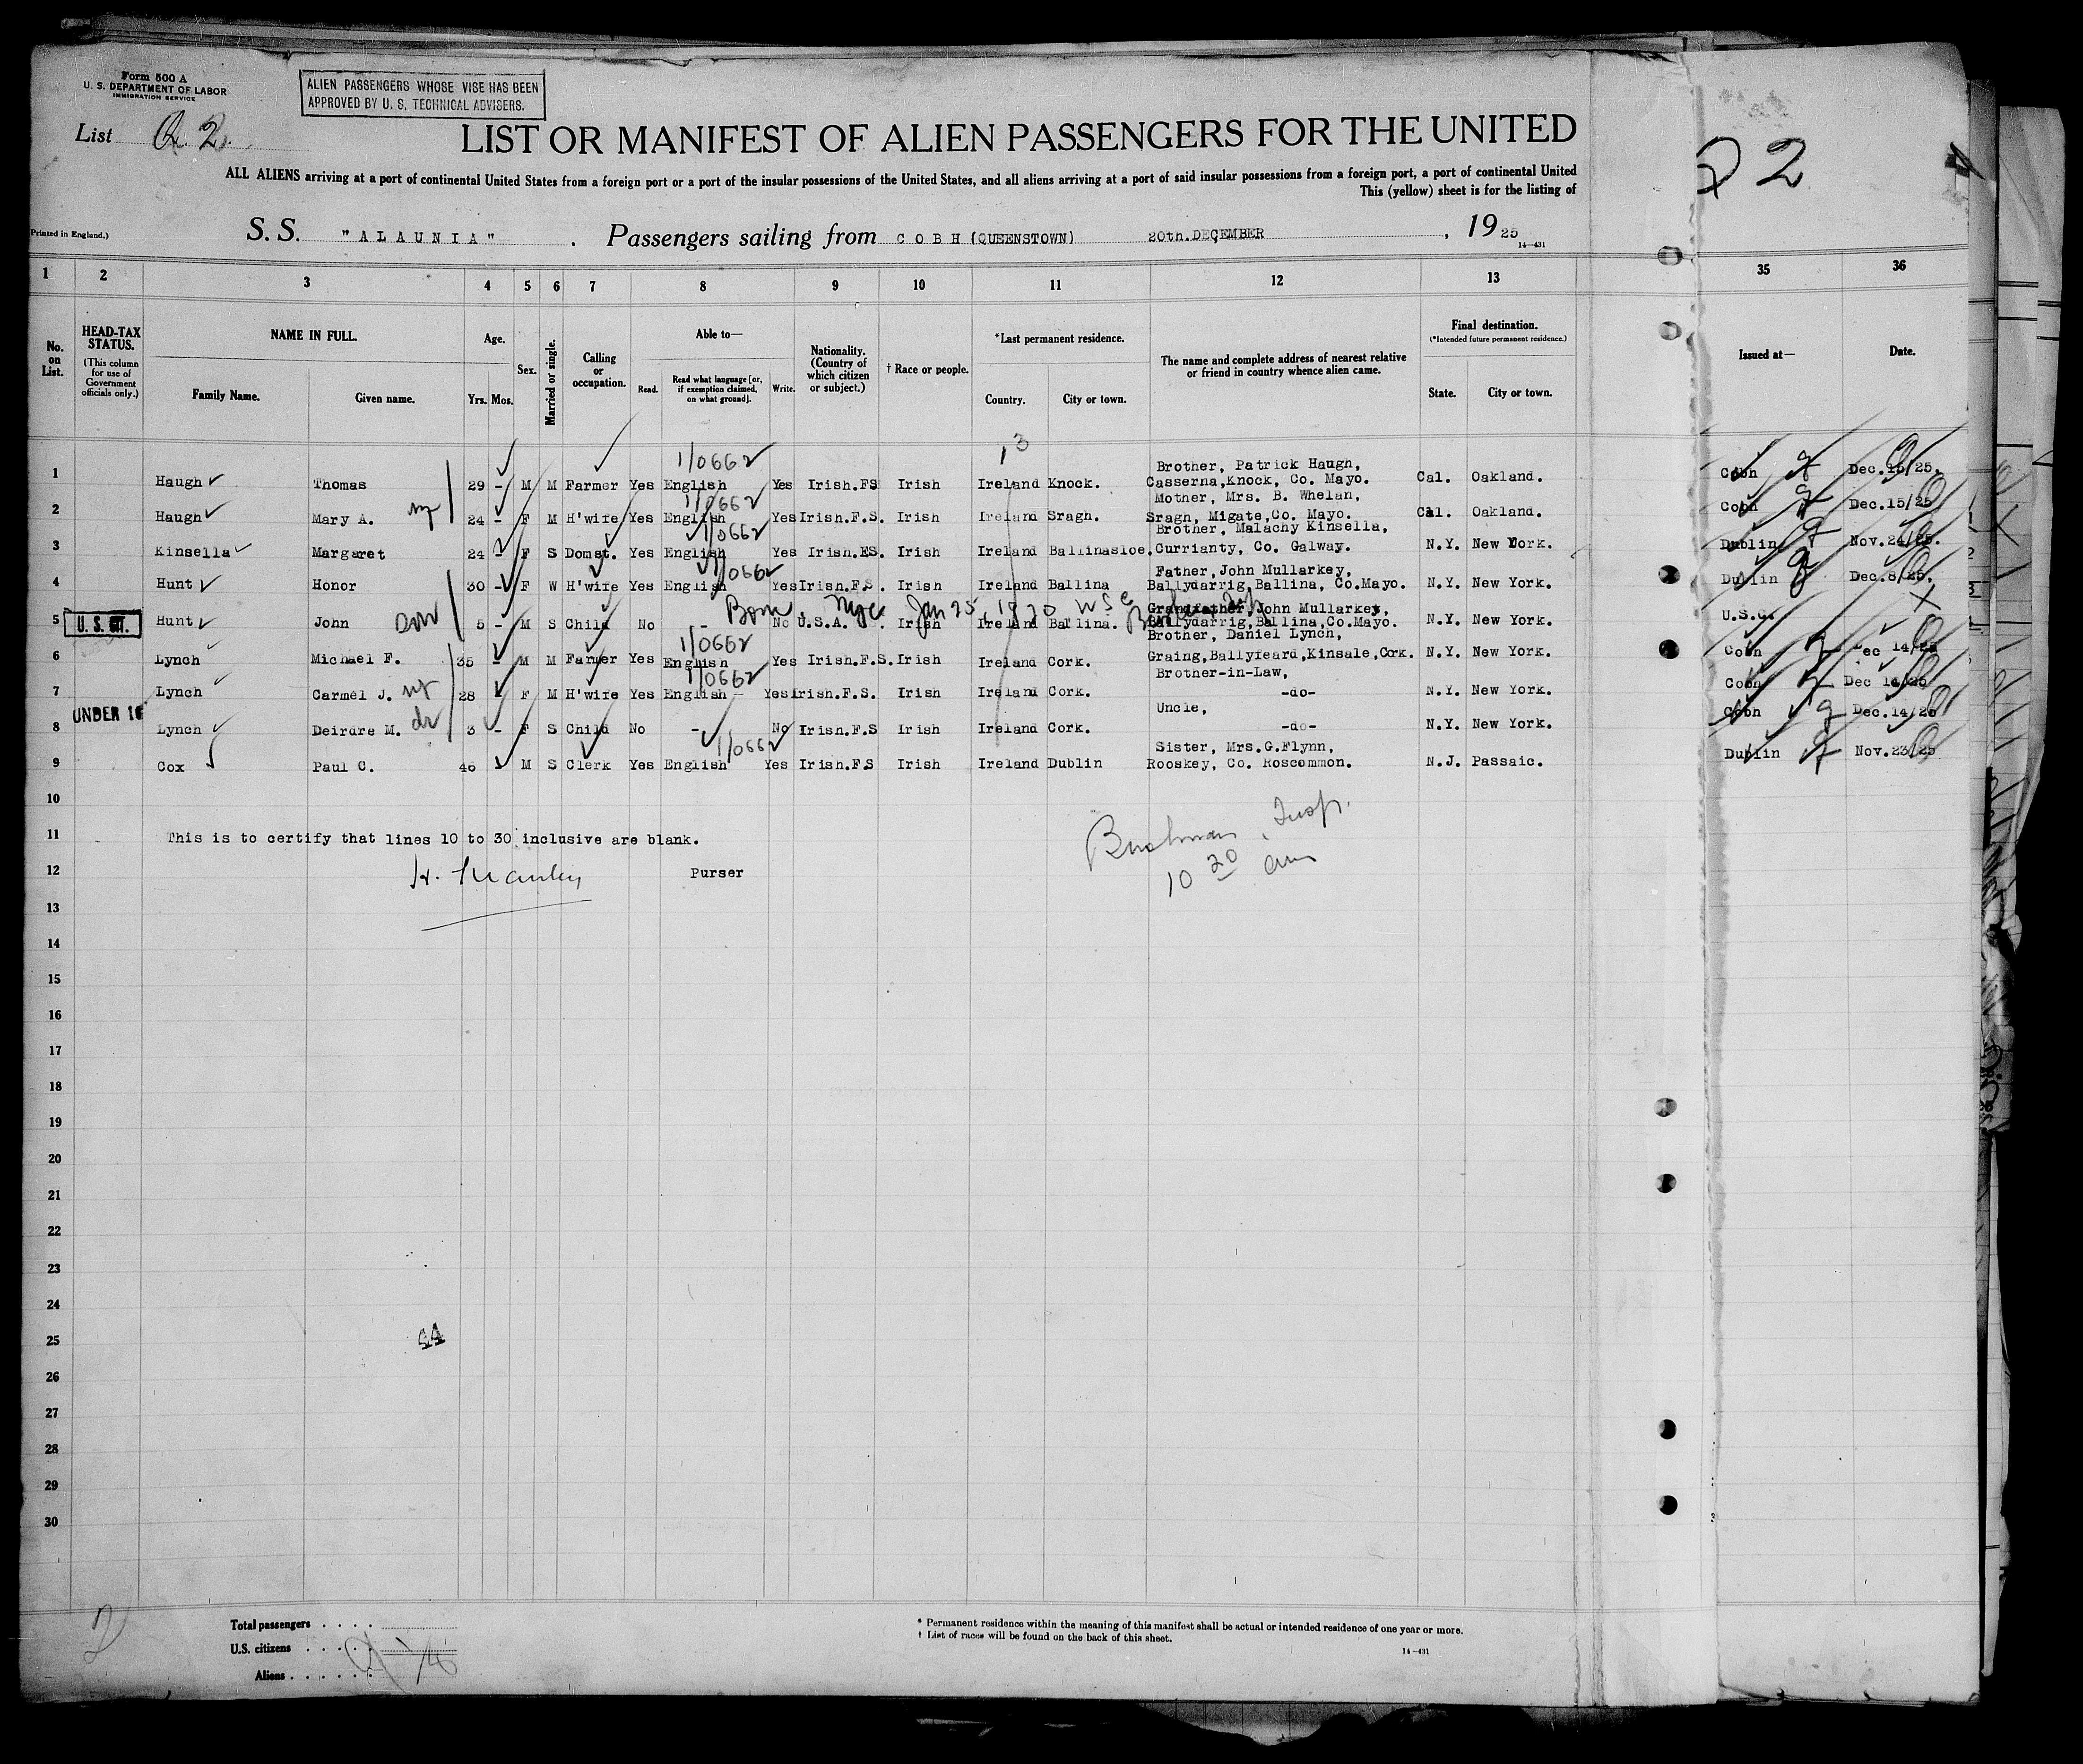 Form 500 A
U. S. DEPARTMENT OF LABOR
IMMIGRATION SERVICE
ALIEN PASSENGERS WHOSE VISE HAS BEEN
APPROVED BY U. S. TECHNICAL ADVISERS.
List 2.
LIST OR MANIFEST OF ALIEN PASSENGERS FOR THE UNITED
22
ALL ALIENS arriving at a port of continental United States from a foreign port or a port of the insular possessions of the United States, and all aliens arriving at a port of said insular possessions from a foreign port, a port of continental United
This (yellow) sheet is for the listing of
Printed in England.)
S. S. "ALAUNIA" . Passengers sailing from COBH (QUEENSTOWN) 20th.DECEMBER , 1925
14—431
1 2 3 4 5 6 7 8 9 10 11 12 13 35 36
No. on List.
HEAD-TAX STATUS.
(This column for use of Government officials only.)
NAME IN FULL.
Family Name. Given name.
Age.
Yrs. Mos.
Sex.
Married or single.
Calling or occupation.
Able to—
Read. Read what language [or, if exemption claimed, on what ground]. Write.
Nationality. (Country of which citizen or subject.)
† Race or people.
*Last permanent residence.
Country. City or town.
The name and complete address of nearest relative or friend in country whence alien came.
Final destination.
(*Intended future permanent residence.)
State. City or town.
Issued at—
Date.
13
1/0662
Brother, Patrick Haugh,
1 Haugh Thomas 29 - M M Farmer Yes English Yes Irish.FS Irish Ireland Knock. Casserna,Knock, Co. Mayo. Cal. Oakland. Cobh Dec.15/25.
1/0662
Mother, Mrs. B. Whelan,
2 Haugh Mary A. 24 - F M H'wife Yes English Yes Irish.F.S. Irish Ireland Sragh. Sragh, Migate,Co. Mayo. Cal. Oakland. Cobh Dec.15/25
1/0662
Brother, Malachy Kinsella,
3 Kinsella Margaret 24 - F S Domst. Yes English Yes Irish.FS. Irish Ireland Ballinasloe. Currianty, Co. Galway. N.Y. New York. Dublin Nov.24/25.
1/0662
Father, John Mullarkey,
4 Hunt Honor 30 - F W H'wife Yes English Yes Irish.F.S. Irish Ireland Ballina Ballydarrig,Ballina, Co.Mayo. N.Y. New York. Dublin Dec.8/25.
Born Jan 25, 1920
Grandfather,John Mullarkey,
5 U. S. CIT. Hunt John 5 - M S Child No - No U.S.A. Irish Ireland Ballina. Ballydarrig,Ballina,Co.Mayo. N.Y. New York. U.S.C.
1/0662
Brother, Daniel Lynch,
6 Lynch Michael F. 35 - M M Farmer Yes English Yes Irish.F.S. Irish Ireland Cork. Graing,Ballyfeard,Kinsale,Cork. N.Y. New York. Cobh ec 14/25
1/0662
Brother-in-Law,
7 Lynch Carmel J. 28 F M H'wife Yes English Yes Irish.F.S. Irish Ireland Cork. -do- N.Y. New York. Cobh Dec 14/25
UNDER 16
Uncle,
8 Lynch Deirdre M. 3 - F S Child No - No Irish.F.S Irish Ireland Cork. -do- N.Y. New York. Cobh Dec.14/25
1/0662
Sister, Mrs.G.Flynn,
9 Cox Paul C. 46 M S Clerk Yes English Yes Irish.F.S Irish Ireland Dublin Rooskey, Co. Roscommon. N.J. Passaic. Dublin Nov.23/25
10
11 This is to certify that lines 10 to 30 inclusive are blank.
Insp.
12 Purser
10 20 am
13
14
15
16
17
18
19
20
21
22
23
24
25 44
26
27
28
29
30
2
Total passengers . . . .
U.S. citizens . . . . .
Aliens . . . . . .
* Permanent residence within the meaning of this manifest shall be actual or intended residence of one year or more.
† List of races will be found on the back of this sheet.
14—431